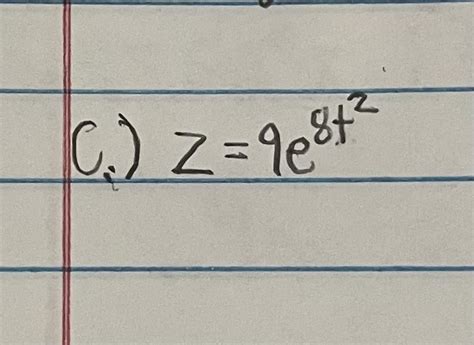 C.) z = 9e^{8t^2}